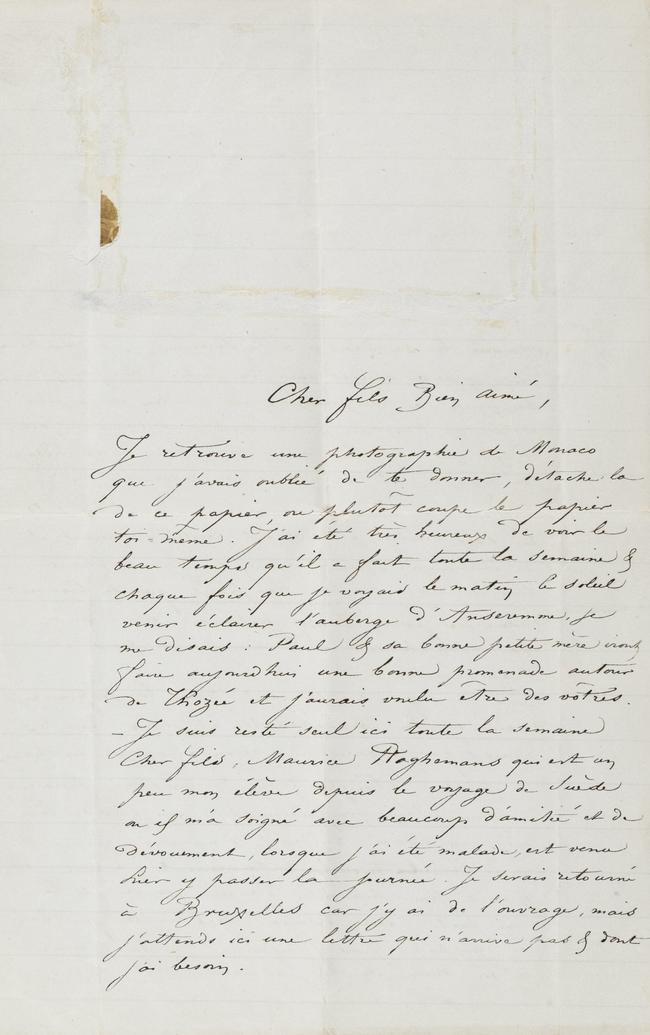 Cher fils Bien aimé,
Je retrouve une photographie de Monaco
que j'avais oublié de te donner, détache la
de ce papier ou plutôt coupe le papier
toi-même. J'ai été très heureux de voir le
beau temps qu'il a fait toute la semaine &
chaque fois que je voyais le matin le soleil
venir éclairer l'auberge d'Anseremme, je
me disais : Paul & sa bonne petite mère iront
faire aujourdhui une bonne promenade autour
de Thozée et j'aurais voulu être des vôtres.
- Je suis resté seul ici toute la semaine
Cher fils, Maurice Haghemans qui est un
peu mon élève depuis le voyage de Suède
ou il m'a soigné avec beaucoup d'amitié et de
dévouement, lorsque j'ai été malade, est venu
hier y passer la journée. Je serais retourné
à Bruxelles car j'y ai de l'ouvrage, mais
j'attends ici une lettre qui n'arrive pas & dont
j'ai besoin.